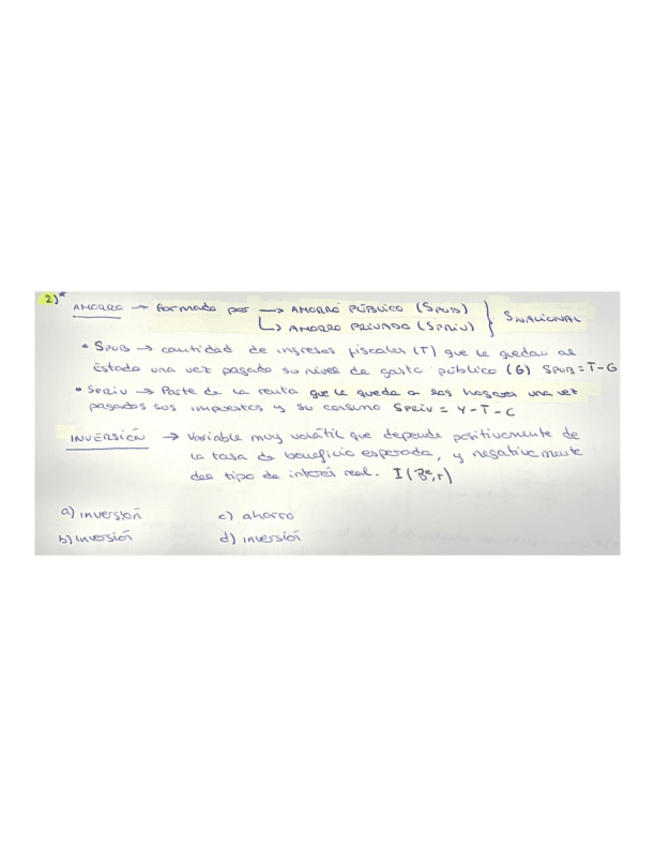 2)*
AHORRO → formado por → AHORRO PÚBLICO (SPUB) } SNACIONAL
↳ AHORRO PRIVADO (SPRIV)
• SPUB → cantidad de ingresos fiscales (T) que le quedan al
Estado una vez pagado su nivel de gasto público (G) SPUB = T-G
• SPRIV → Parte de la renta que le queda a los hogares una vez
pagados sus impuestos y su consumo SPRIV = Y-T-C
INVERSIÓN → Variable muy volátil que depende positivamente de
la tasa de beneficio esperada, y negativamente
del tipo de interés real. I(Bᵉ,r)
a) inversión c) ahorro
b) inversión d) inversión